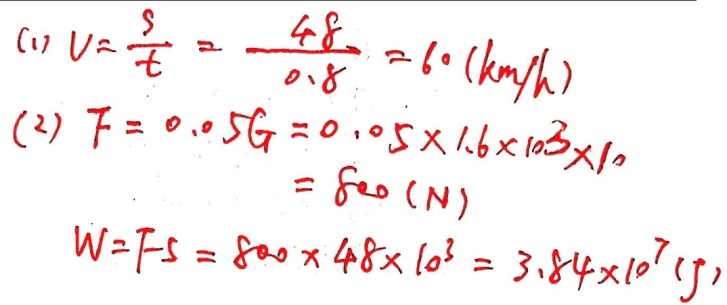 (1) V = S/t = 48/0.8 = 60 (km/h)
(2) F = 0.05G = 0.05 × 1.6 × 10³ × 10
= 800 (N)
W = FS = 800 × 48 × 10³ = 3.84 × 10⁷ (J)